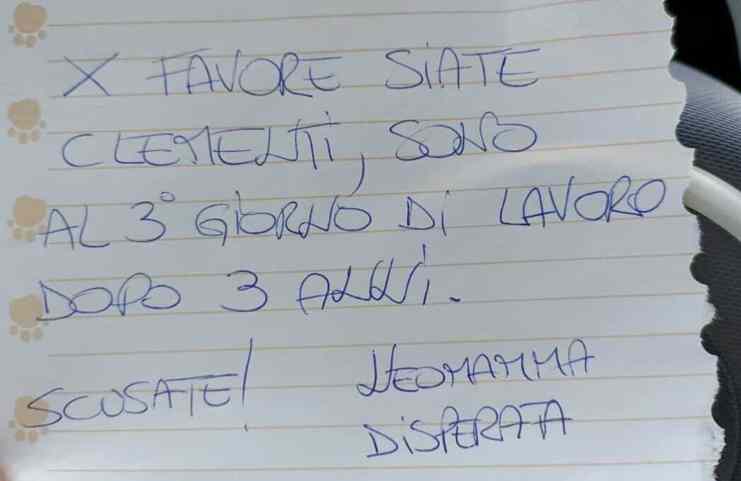 X FAVORE SiATE
CLEMENTi, SONO
AL 3° GiORNO Di LAVORO
DOPO 3 ANNi.
SCUSATE!
NEOMAMMA
DiSPERATA